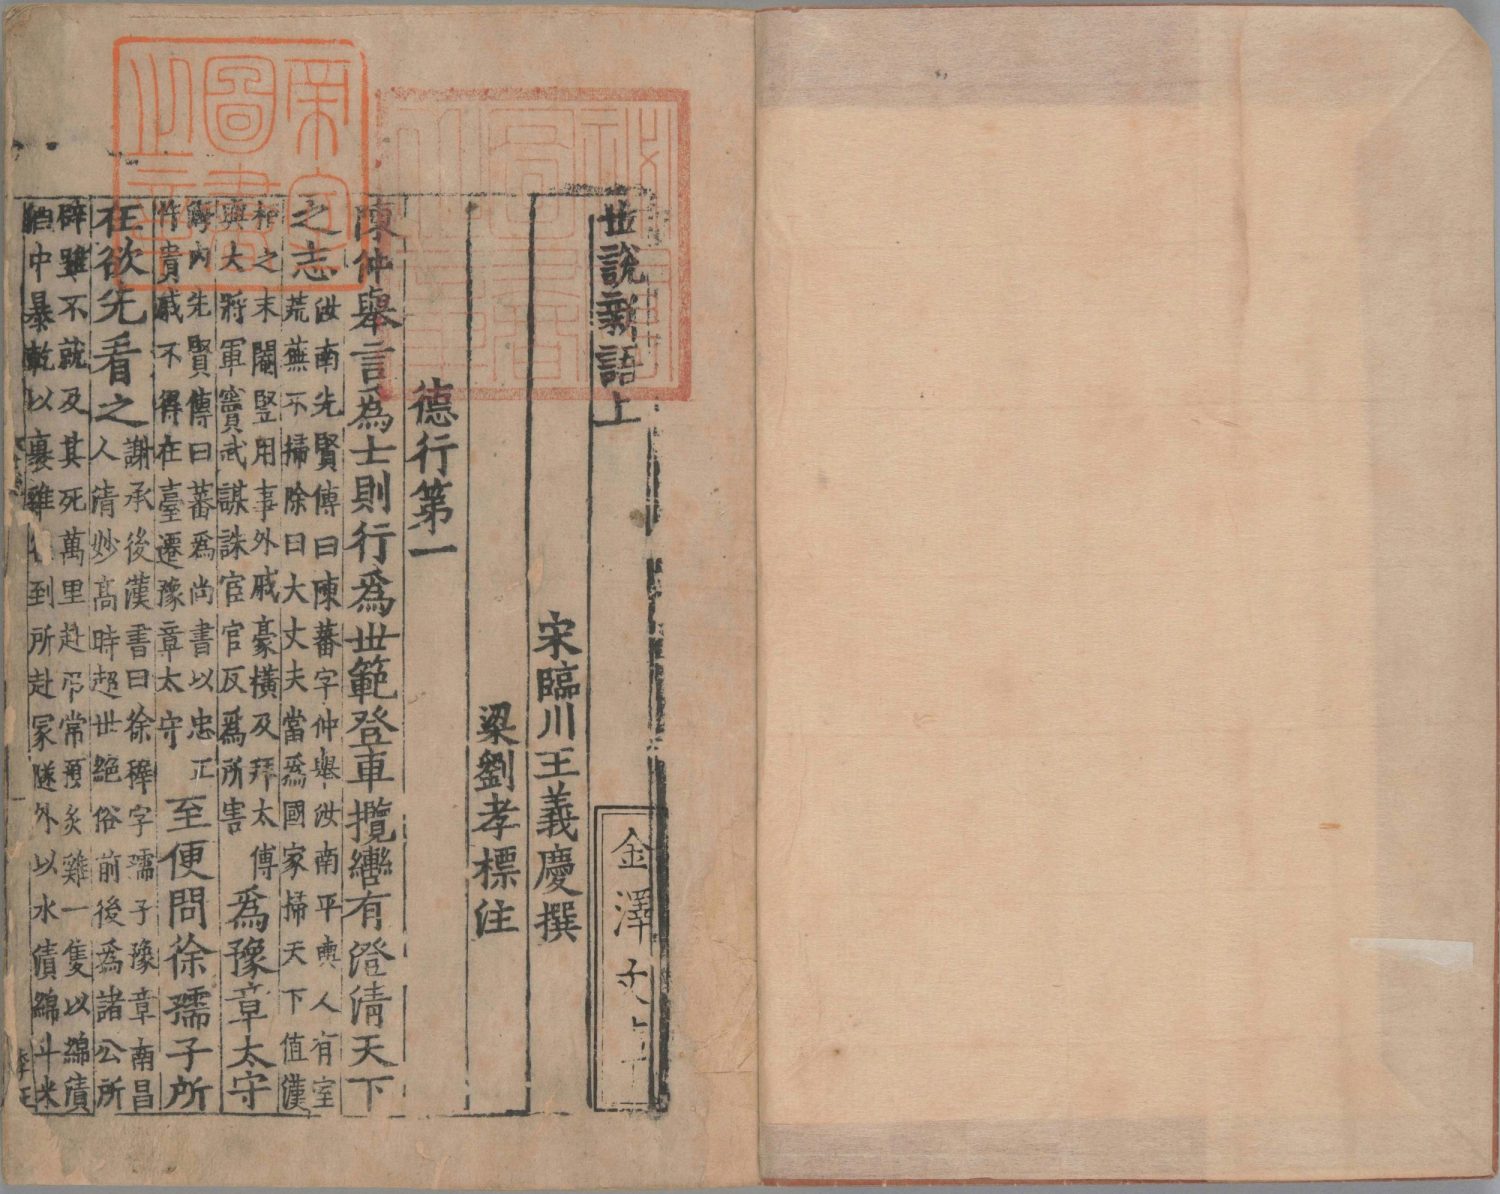 帝室圖書之章
秘閣圖書之章
世說新語上
金澤文庫
宋臨川王義慶撰
梁劉孝標注
德行第一
陳仲舉言爲士則行爲世範登車攬轡有澄清天下
之志
汝南先賢傳曰陳蕃字仲舉汝南平輿人有室
荒蕪不掃除曰大丈夫當爲國家掃天下值漢
桓之末閹豎用事外戚豪橫及拜太傅
與大將軍竇武謀誅宦官反爲所害
爲豫章太守
海内先賢傳曰蕃爲尚書以忠正
忤貴戚不得在臺遷豫章太守
至便問徐孺子所
在欲先看之
謝承後漢書曰徐穉字孺子豫章南昌
人清妙高時超世絕俗前後爲諸公所
辟雖不就及其死萬里赴弔常預炙雞一隻以綿漬
酒中暴乾以裹雞徑到所赴冢隧外以水漬綿斗米